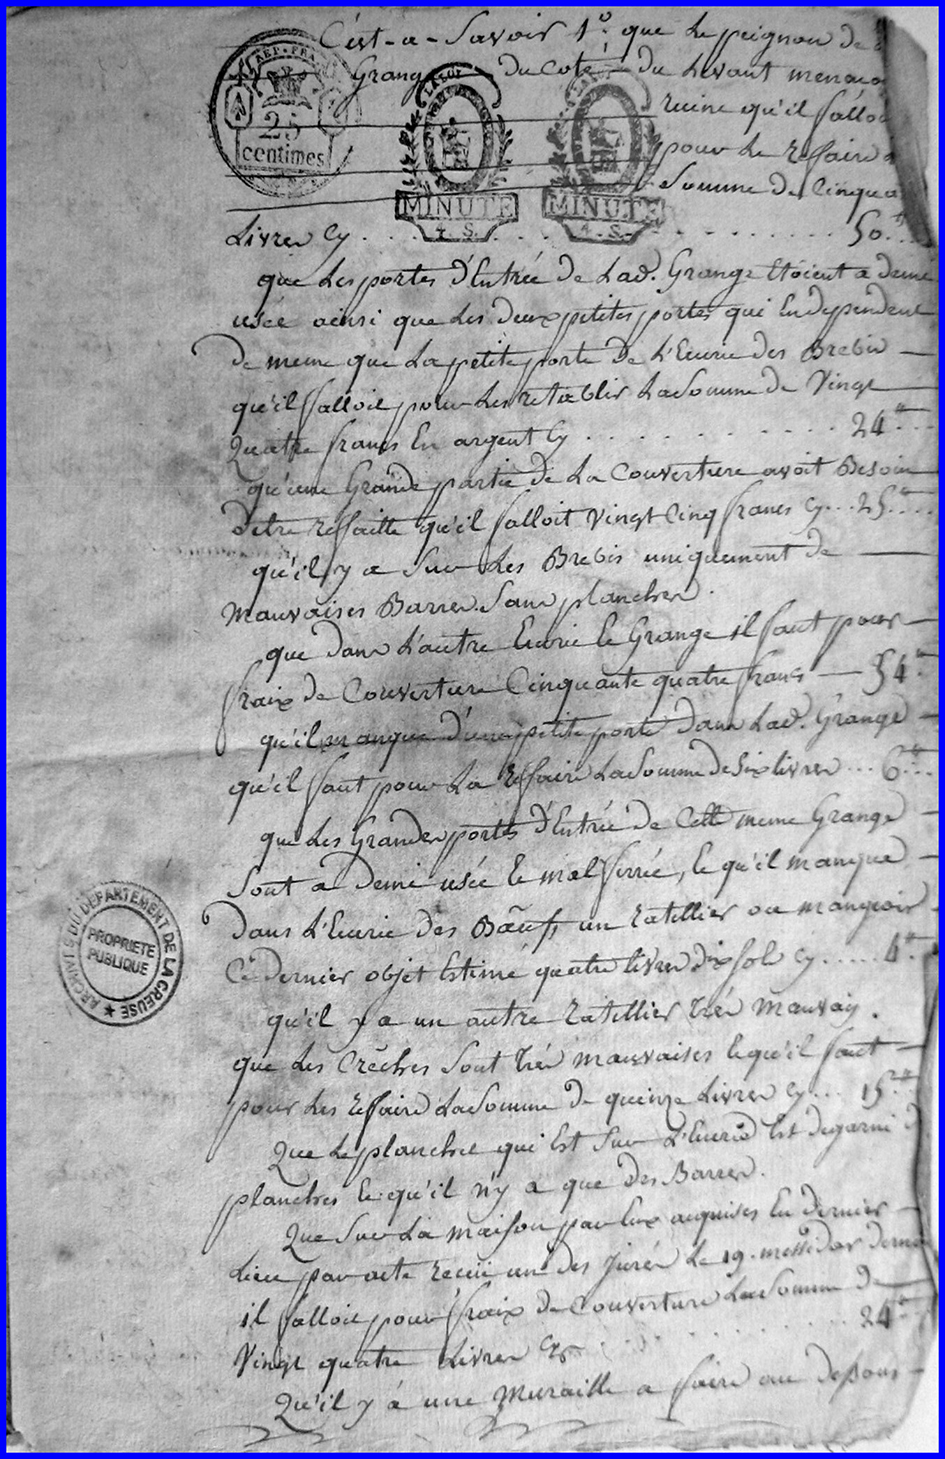 C'est-a-Savoir 1°. que le peignon de
Grange du Coté du Levant menaca
ruine qu'il falloi
pour le Reffaire
Somme de Cinqua
REP. FRA
25
centimes
LA LOI
MINUTE
4. S.
LA LOI
MINUTE
4. S.
Livres Cy . . . . . . . . . . . . 50.#
que les portes d'Entrée de Lad. Grange Etoient a demi
usée ainsi que les deux petites portes qui En dependent
de meme que La petite porte de L'Ecurie des Brebis —
qu'il falloit pour Les retablir La Somme de Vingt
Quatre francs En argent Cy . . . . . . . . 24#
qu'une Grande partie de La Couverture avoit Besoin
d'etre reffaitte qu'il falloit Vingt Cinq francs Cy . . . 25#
qu'il y a Sur Les Brebis uniquement de —
mauvaises Barres Sans plancher.
que dans L'autre Ecurie Et Grange il faut pour —
fraix de Couverture Cinquante quatre francs — 54#
qu'il manque d'une petite porte dans Lad. Grange —
qu'il faut pour La Reffaire La Somme de Six livres . . . 6#
que Les Grandes portes d'Entrée de Cette meme Grange —
Sont a demi usée Et mal ferrée, Et qu'il manque —
dans L'Ecurie des Bœufs un ratillier ou mangeoir —
Ce dernier objet Estimé quatre livres dix sols Cy . . . . . 4#
qu'il y a un autre ratillier trés mauvais.
que Les Crêches Sont trés mauvaises Et qu'il faut —
pour Les reffaire La Somme de quinze Livres Cy . . . 15#
Que Le plancher qui Est Sur L'Ecurie Est degarni d
planches Et qu'il n'y a que des Barres.
Que Sur La maison par Eux acquises En dernier —
Lieu par acte recüe un des Jurés Le 19. messidor derni
il falloit pour fraix de Couverture La Somme de —
Vingt quatre Livres Cy . . . . . . . . 24#
Qu'il y à une Muraille a faire au dessous —
ARCHIVES DU DÉPARTEMENT DE LA CREUSE
PROPRIETE
PUBLIQUE